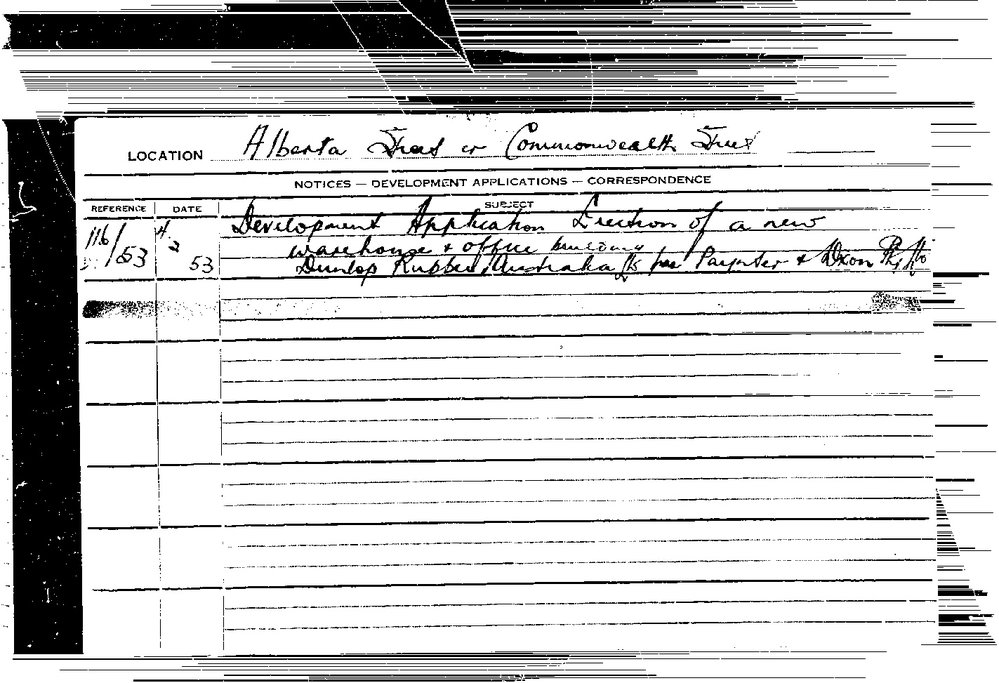 LOCATION Alberta Street or Commonwealth Street
NOTICES — DEVELOPMENT APPLICATIONS — CORRESPONDENCE
REFERENCE DATE SUBJECT
116/53 4 2 53 Development Application Erection of a new
warehouse & office building
Dunlop Rubber Australia Ltd per Paynter & Dixon Pty Ltd